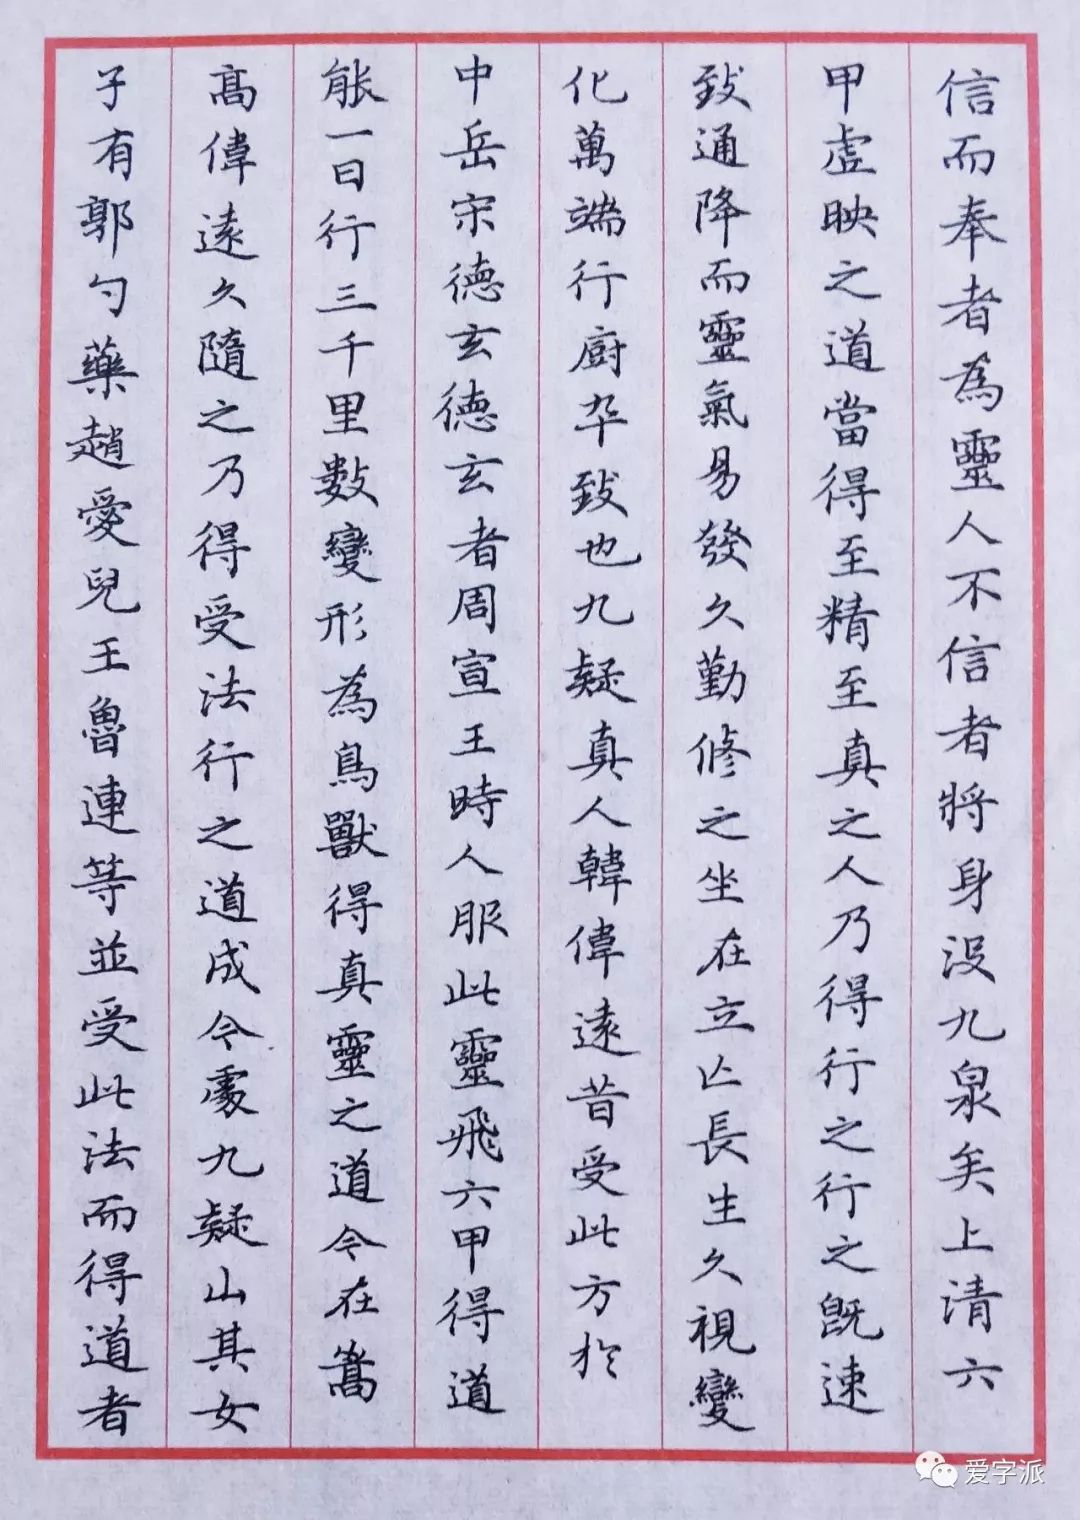 信而奉者為靈人不信者將身没九泉矣上清六
甲虛映之道當得至精至真之人乃得行之行之既速
致通降而靈氣易發久勤修之坐在立亡長生久視變
化萬端行廚卒致也九疑真人韓偉遠昔受此方於
中岳宋德玄德玄者周宣王時人服此靈飛六甲得道
能一日行三千里數變形為鳥獸得真靈之道今在嵩
高偉遠久隨之乃得受法行之道成今處九疑山其女
子有郭勺藥趙愛兒王魯連等並受此法而得道者
爱字派